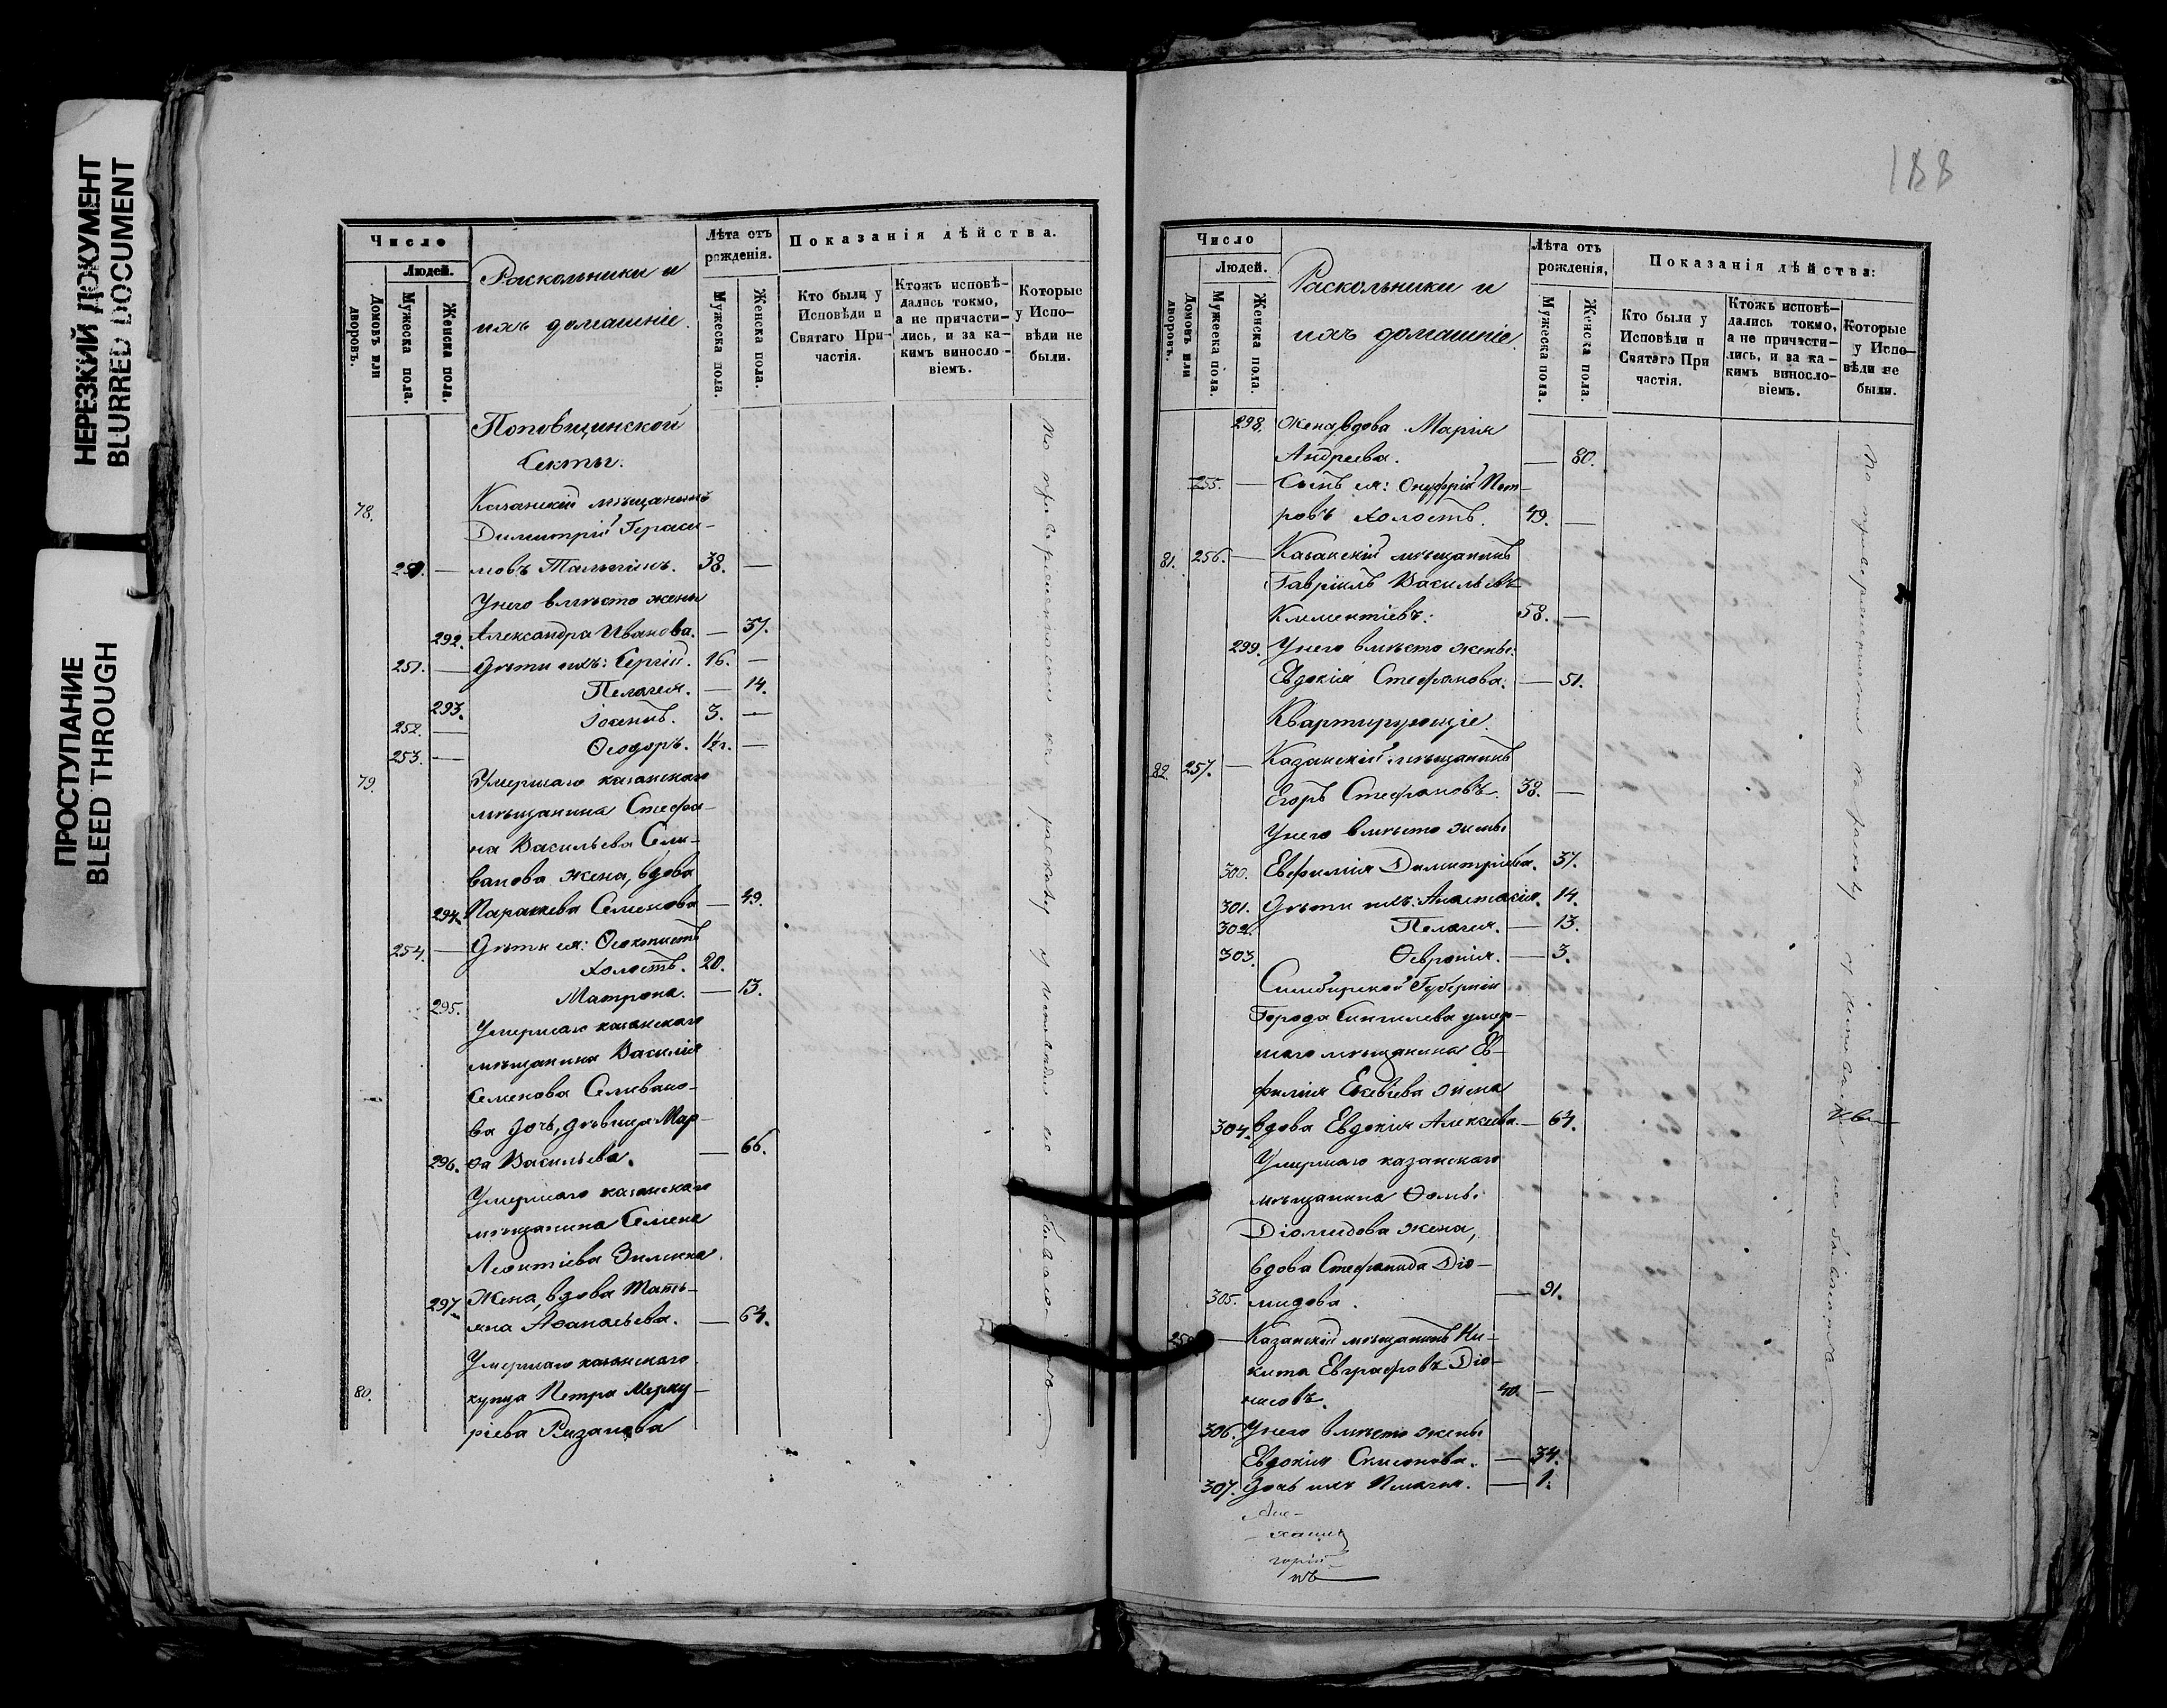 НЕРЕЗКИЙ ДОКУМЕНТ
BLURRED DOCUMENT
ПРОСТУПАНИЕ
BLEED THROUGH
Число
Людей.
Домовъ или дворовъ.
Мужеска пола.
Женска пола.
Раскольники и
ихъ домашніе.
Лѣта отъ рожденія.
Мужеска пола.
Женска пола.
Показанія дѣйства.
Кто были у Исповѣди и Святаго Причастія.
Ктожъ исповѣ-
дались токмо,
а не причасти-
лись, и за ка-
кимъ винosло-
віемъ.
Которые
у Испо-
вѣди не
были.
Поповщинской
Секты.
78. Казанскій мѣщанинъ
Димитрій Гераси-
250. — мовъ Талыгинъ. 38. —
У него вмѣсто жены
292. Александра Иванова. — 37.
251. — Дѣти ихъ: Сергій. 16. —
293. Пелагея. — 14.
252. — Іоаннъ. 3. —
253. — Ѳеодоръ. 1½ г. —
79. Умершаго казанскаго
мѣщанина Стефа-
на Васильева Сели-
ванова жена, вдова
294. Параскева Семенова — 49.
254. — Дѣти ея: Ѳеоктистъ
холостъ. 20.
295. Матрона. — 13.
Умершаго казанскаго
мѣщанина Василія
Семенова Селивано-
ва дочь, дѣвица Мар-
296. ѳа Васильева. — 66.
Умершаго казанскаго
мѣщанина Семена
Леонтіева Зимина
297. Жена, вдова Тать-
яна Аѳанасьева. — 64.
Умершаго казанскаго
80. купца Петра Мерку-
ріева Рязанова
По приверженности къ расколу у исповѣди не бывали
188
Число
Людей.
Домовъ или дворовъ.
Мужеска пола.
Женска пола.
Раскольники и
ихъ домашніе.
Лѣта отъ рожденія,
Мужеска пола.
Женска пола.
Показанія дѣйства:
Кто были у
Исповѣди и
Святаго При
частія.
Ктожъ исповѣ-
дались токмо,
а не причасти-
лись, и за ка-
кимъ винosло-
віемъ.
Которые
у Испо-
вѣди не
были.
298. Жена, вдова Марія
Андреева. — 80.
255. — Сынъ ея: Онуфрій Пет-
ровъ холостъ. 49. —
81. 256. — Казанскій мѣщанинъ
Гавріилъ Васильевъ
Климентіевъ. 58. —
299. У него вмѣсто жены:
Евдокія Стефанова. — 51.
Квартирующіе.
82. 257. — Казанскій мѣщанинъ
Егоръ Стефановъ. 38. —
У него вмѣсто жены
300. Евфимія Димитріева. 37.
301. Дѣти ихъ: Анастасія. 14.
302. Пелагея. — 13.
303. Ѳевронія. — 3.
Симбирской Губерніи
Города Сингилева умер-
шаго мѣщанина Ев-
фимія Евсевіева жена
304. вдова Евдокія Алексеева. — 64.
Умершаго казанскаго
мѣщанина Ѳомы
Діомидова жена,
вдова Стефанида Діо-
305. мидова. — 91.
Казанскій мѣщанинъ Ни-
кита Евграфовъ Діо-
нисовъ. 40. —
306. У него вмѣсто жены
Евдокія Симеонова. — 34.
307. Дочь ихъ Пелагея. — 1.
По приверженности къ расколу у исповѣди не бывали